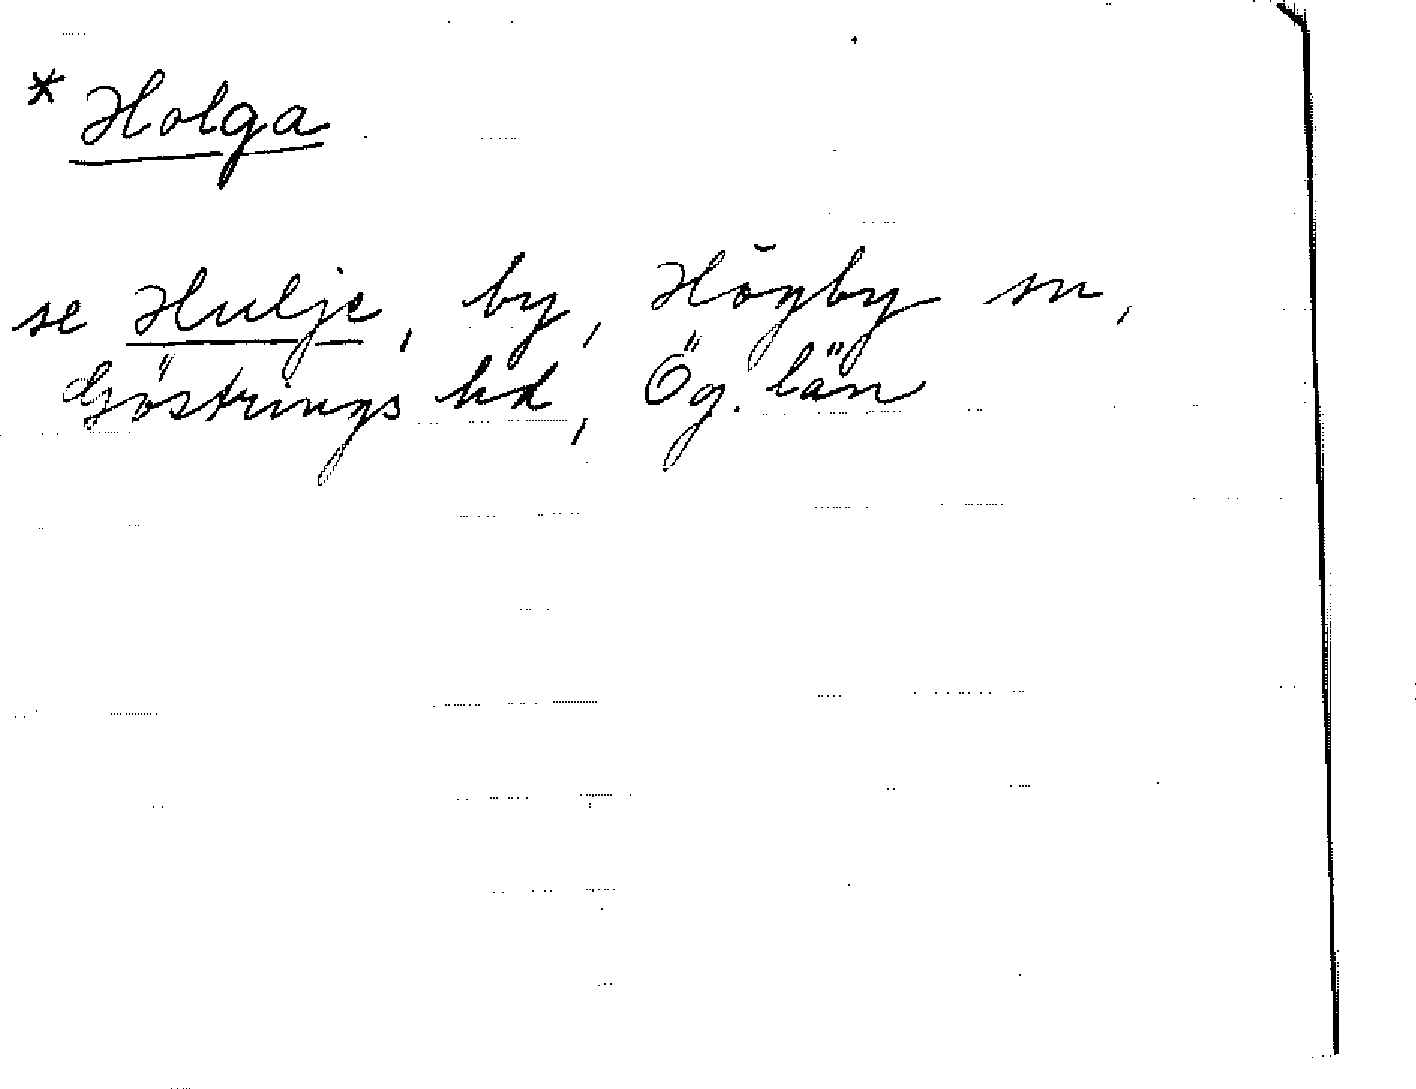 * Holga
se Hulje, by, Högby sn,
Göstrings hd, Ög. län